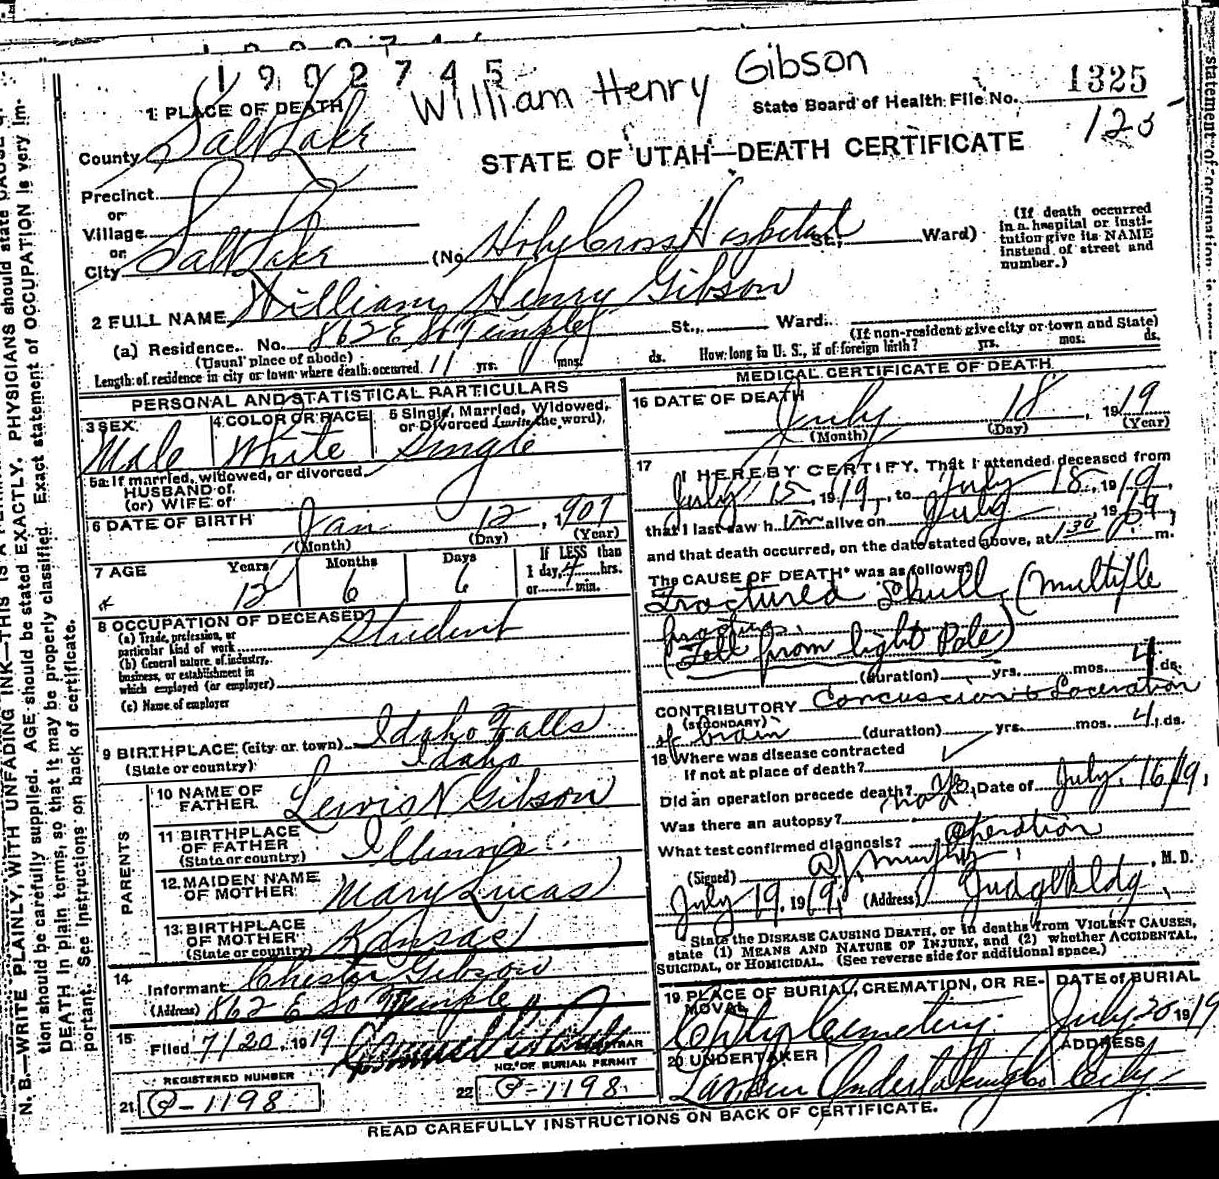 1902745
William Henry Gibson
State Board of Health File No. 1325
125
1 PLACE OF DEATH
County Salt Lake
STATE OF UTAH—DEATH CERTIFICATE
Precinct
or
Village
or
City Salt Lake (No Holy Cross Hospital St., Ward)
(If death occurred in a hospital or institution give its NAME instead of street and number.)
2 FULL NAME William Henry Gibson
(a) Residence. No. 862 E So Temple St., Ward.
(Usual place of abode) (If non-resident give city or town and State)
Length of residence in city or town where death occurred 11 yrs. mos. ds. How long in U. S., if of foreign birth? yrs. mos. ds.
PERSONAL AND STATISTICAL PARTICULARS
3 SEX Male
4 COLOR OR RACE White
5 Single, Married, Widowed, or Divorced (write the word). Single
5a If married, widowed, or divorced
HUSBAND of
(or) WIFE of
6 DATE OF BIRTH Jan 12, 1907
(Month) (Day) (Year)
7 AGE Years Months Days If LESS than
12 6 6 1 day, 4 hrs.
or min.
8 OCCUPATION OF DECEASED Student
(a) Trade, profession, or particular kind of work
(b) General nature of industry, business, or establishment in which employed (or employer)
(c) Name of employer
9 BIRTHPLACE (city or town) Idaho Falls
(State or country) Idaho
PARENTS
10 NAME OF FATHER Lewis N Gibson
11 BIRTHPLACE OF FATHER (State or country) Illinois
12 MAIDEN NAME OF MOTHER Mary Lucas
13 BIRTHPLACE OF MOTHER (State or country) Kansas
14 Informant Chester Gibson
(Address) 862 E So Temple
15 Filed 7/20, 1919
REGISTRAR
REGISTERED NUMBER
21 Q-1198
NO. OF BURIAL PERMIT
22 Q-1198
MEDICAL CERTIFICATE OF DEATH
16 DATE OF DEATH July 18, 1919
(Month) (Day) (Year)
17 I HEREBY CERTIFY, That I attended deceased from
July 15, 1919, to July 18, 1919,
that I last saw him alive on July, 1919,
and that death occurred, on the date stated above, at 130 P. m.
The CAUSE OF DEATH* was as follows:
Fractured Skull (Multiple
fractures.
(Fell from light Pole)
(duration) yrs. mos. 4 ds.
CONTRIBUTORY Concussion & Laceration
(SECONDARY)
of brain (duration) yrs. mos. 4 ds.
18 Where was disease contracted
If not at place of death?
Did an operation precede death? Yes Date of July 16/19.
Was there an autopsy? no
What test confirmed diagnosis? Operation
(Signed) M. D.
July 19, 1919 (Address) Judge Bldg.
*State the DISEASE CAUSING DEATH, or in deaths from VIOLENT CAUSES, state (1) MEANS AND NATURE OF INJURY, and (2) whether ACCIDENTAL, SUICIDAL, or HOMICIDAL. (See reverse side for additional space.)
19 PLACE OF BURIAL, CREMATION, OR REMOVAL City Cemetery.
DATE of BURIAL July 20 1919
20 UNDERTAKER Larkin Undertaking Co
ADDRESS City
READ CAREFULLY INSTRUCTIONS ON BACK OF CERTIFICATE.
tion should be carefully supplied. AGE should be stated EXACTLY. PHYSICIANS should state
DEATH in plain terms, so that it may be properly classified. Exact statement of OCCUPATION is very im-
portant. See instructions on back of certificate.